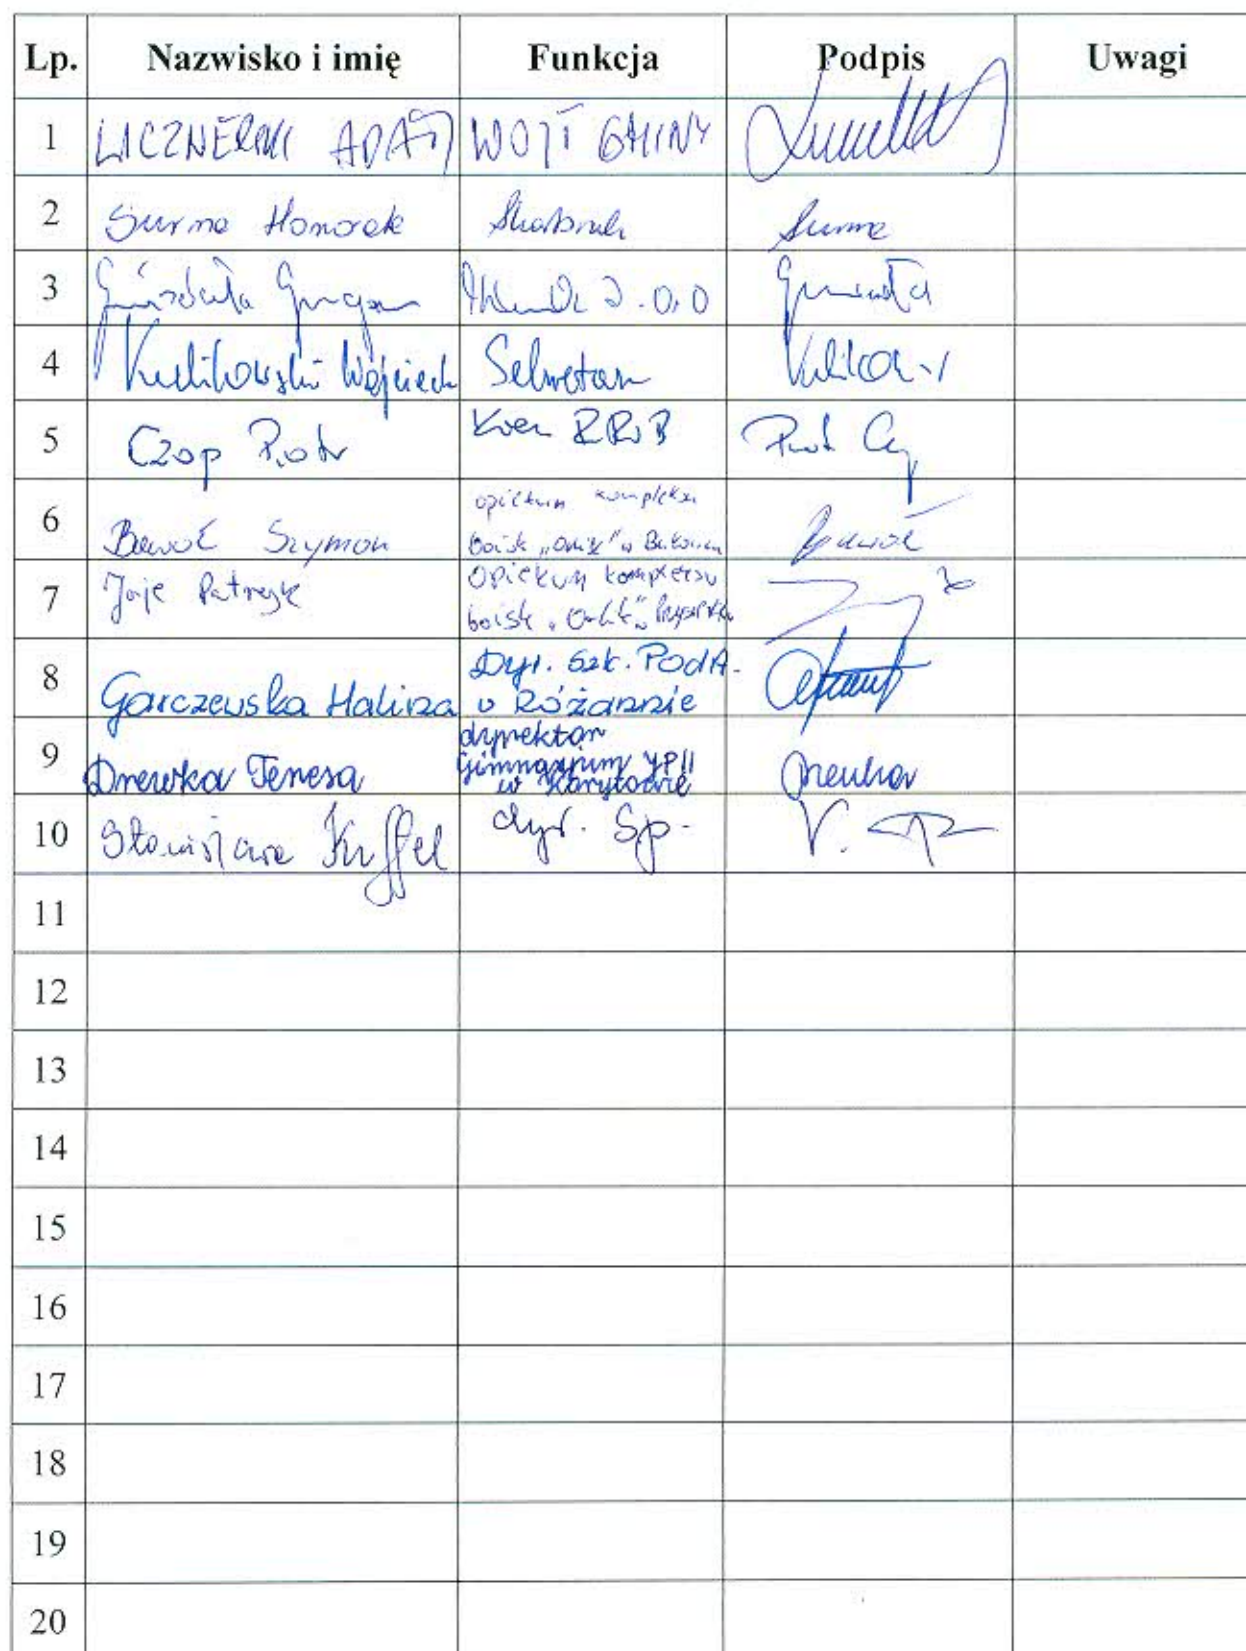 Lp. Nazwisko i imię Funkcja Podpis Uwagi
1 LICZNERSKI ADAM WÓJT GMINY
2 Surma Honorata Skarbnik Surma
3 Gwizdała
4 Kulikowski Wojciech Sekretarz
5 Czop Piotr Piotr
6 Bawół Szymon opiekun kompleksu
boisk „Orlik" w Bawół
7 Jaje Patryk opiekun kompleksu
boisk „Orlik"
8 Garczewska Halina Dyr. Szk. Podst.
w Różannie
9 Drewka Teresa dyrektor
Gimnazjum JPII
w Drewka
10 Stanisława Kuffel dyr. Sp.
11
12
13
14
15
16
17
18
19
20